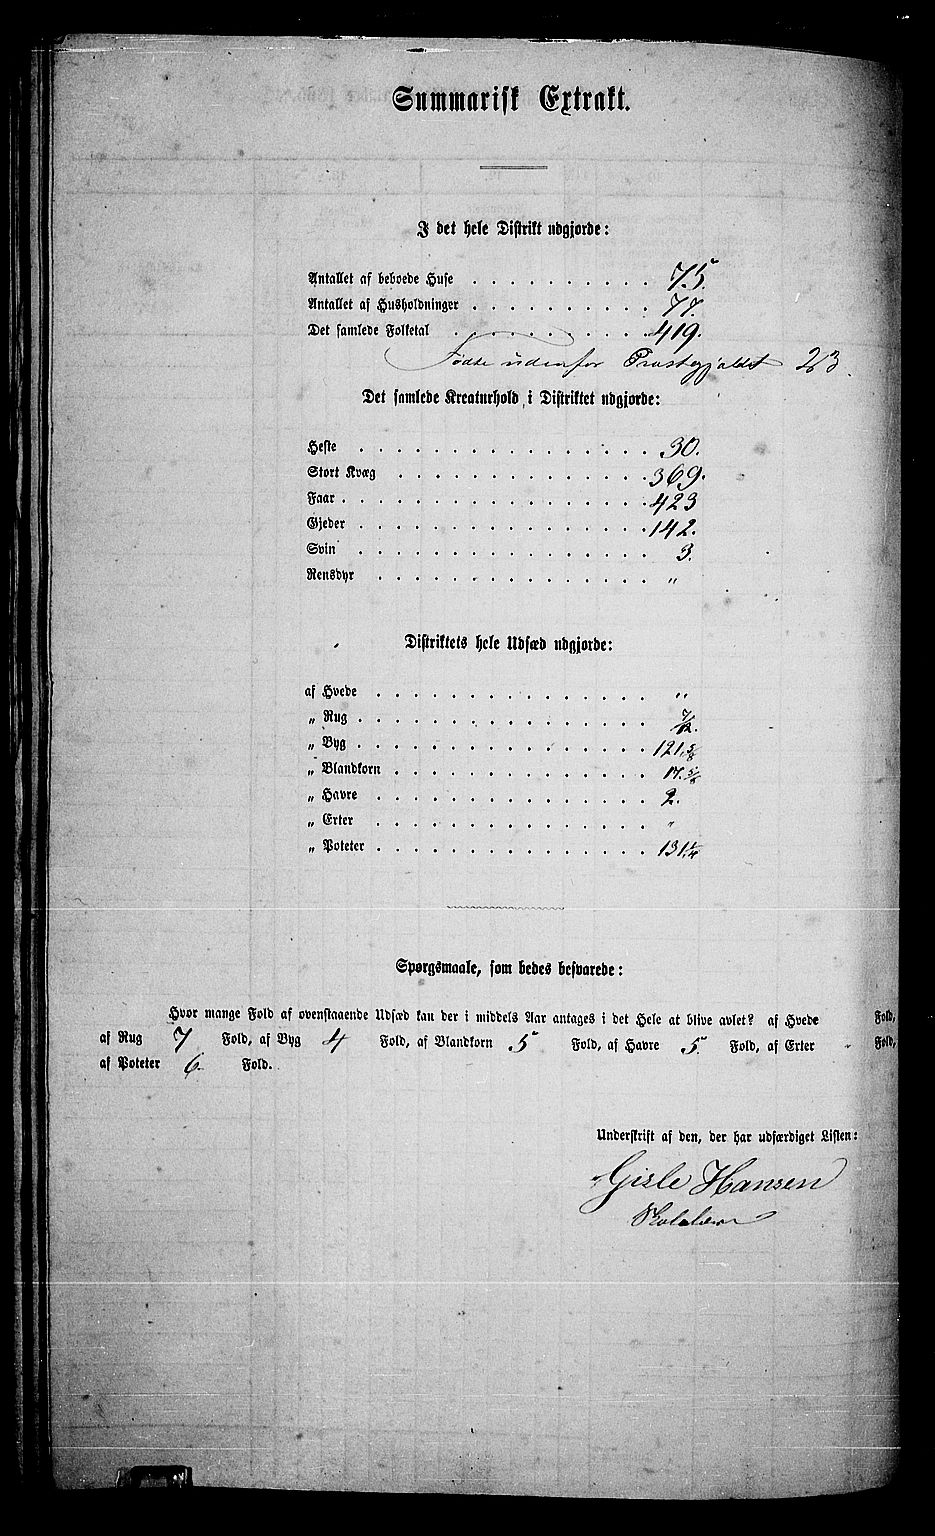 Summarisk Extrakt.
I det hele Distrikt udgjorde:
Antallet af beboede Huse . . . . . . . . . . 75.
Antallet af Husholdninger . . . . . . . . . . 77.
Det samlede Folketal . . . . . . . . . . 419.
Fødte udenfor Præstegjeldet 23.
Det samlede Kreaturhold i Distriktet udgjorde:
Heste . . . . . . . . . . 30.
Stort Kvæg . . . . . . . . . . 369.
Faar . . . . . . . . . . 423
Gjeder . . . . . . . . . . 142.
Svin . . . . . . . . . . 3.
Rensdyr . . . . . . . . . . "
Distriktets hele Udsæd udgjorde:
af Hvede . . . . . . . . . . "
„ Rug . . . . . . . . . . 7/12.
„ Byg . . . . . . . . . . 121. 5/8
„ Blandkorn . . . . . . . . . . 17. 5/8
„ Havre . . . . . . . . . . 2.
„ Erter . . . . . . . . . . "
„ Poteter . . . . . . . . . . 131 1/4
Spørgsmaale, som bedes besvarede:
Hvor mange Fold af ovenstaaende Udsæd kan der i middels Aar antages i det Hele at blive avlet? af Hvede Fold,
af Rug 7 Fold, af Byg 4 Fold, af Blandkorn 5 Fold, af Havre 5. Fold, af Erter " Fold,
af Poteter 6. Fold.
Underskrift af den, der har udfærdiget Listen:
Gisle Hansen